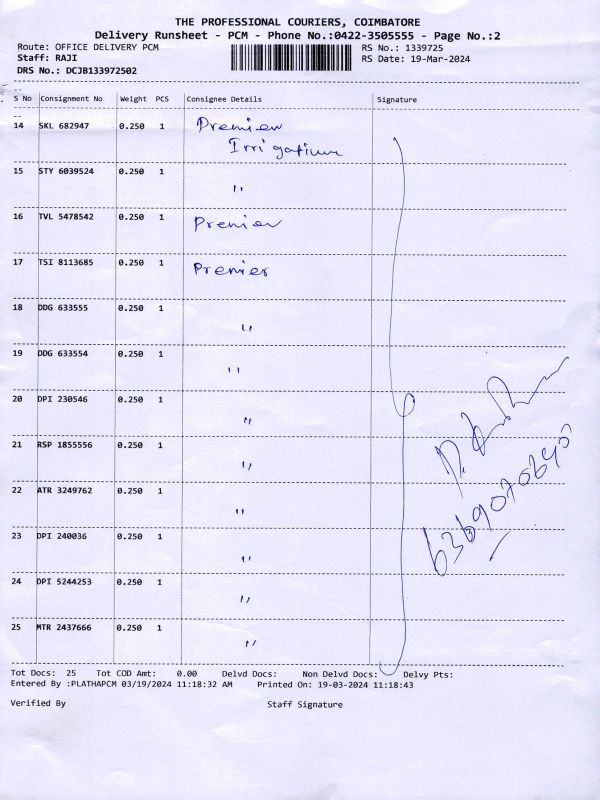 THE PROFESSIONAL COURIERS, COIMBATORE
Delivery Runsheet - PCM - Phone No.:0422-3505555 - Page No.:2
Route: OFFICE DELIVERY PCM RS No.: 1339725
Staff: RAJI RS Date: 19-Mar-2024
DRS No.: DCJB133972502
S No Consignment No Weight PCS Consignee Details Signature
14 SKL 682947 0.250 1 Premier
Irrigation
15 STY 6039524 0.250 1 "
16 TVL 5478542 0.250 1 Premier
17 TSI 8113685 0.250 1 Premier
18 DDG 633555 0.250 1 "
19 DDG 633554 0.250 1 "
20 DPI 230546 0.250 1 "
21 RSP 1855556 0.250 1 "
22 ATR 3249762 0.250 1 "
23 DPI 240036 0.250 1 "
24 DPI 5244253 0.250 1 "
25 MTR 2437666 0.250 1 "
Tot Docs: 25 Tot COD Amt: 0.00 Delvd Docs: Non Delvd Docs: Delvy Pts:
Entered By :PLATHAPCM 03/19/2024 11:18:32 AM Printed On: 19-03-2024 11:18:43
Verified By Staff Signature